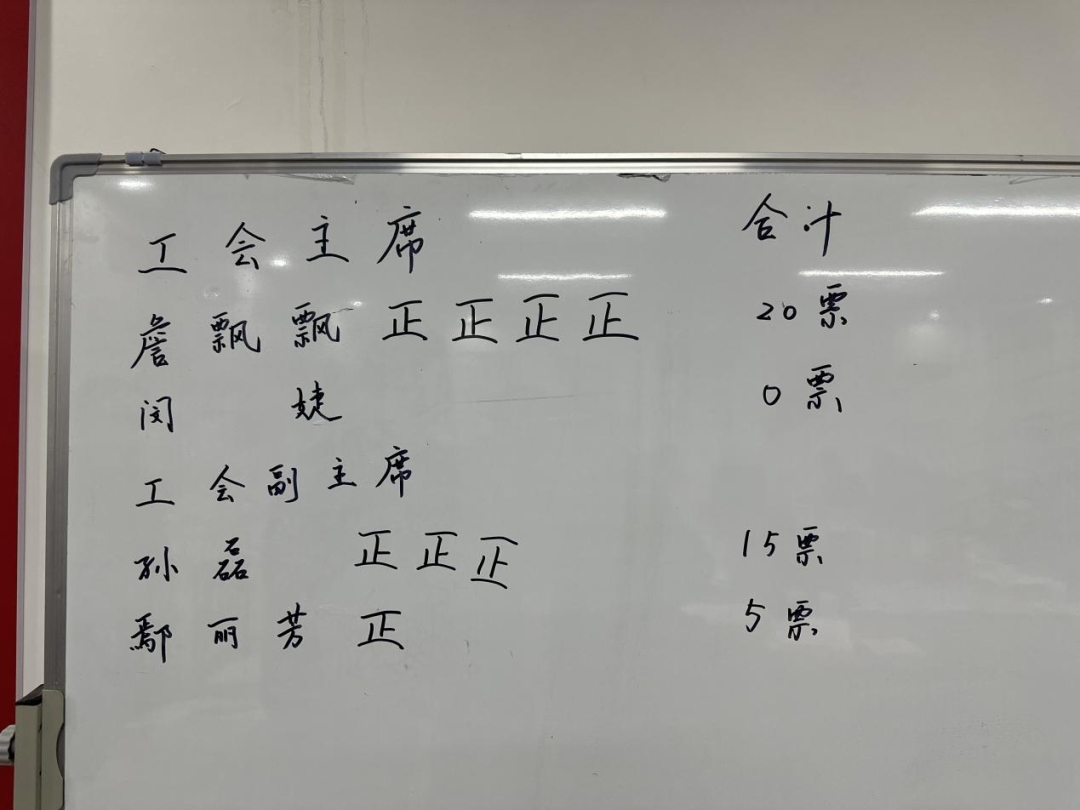 工会主席 合计
詹飘飘 正正正正 20票
闵婕 0票
工会副主席
孙磊 正正正 15票
鄢丽芳 正 5票